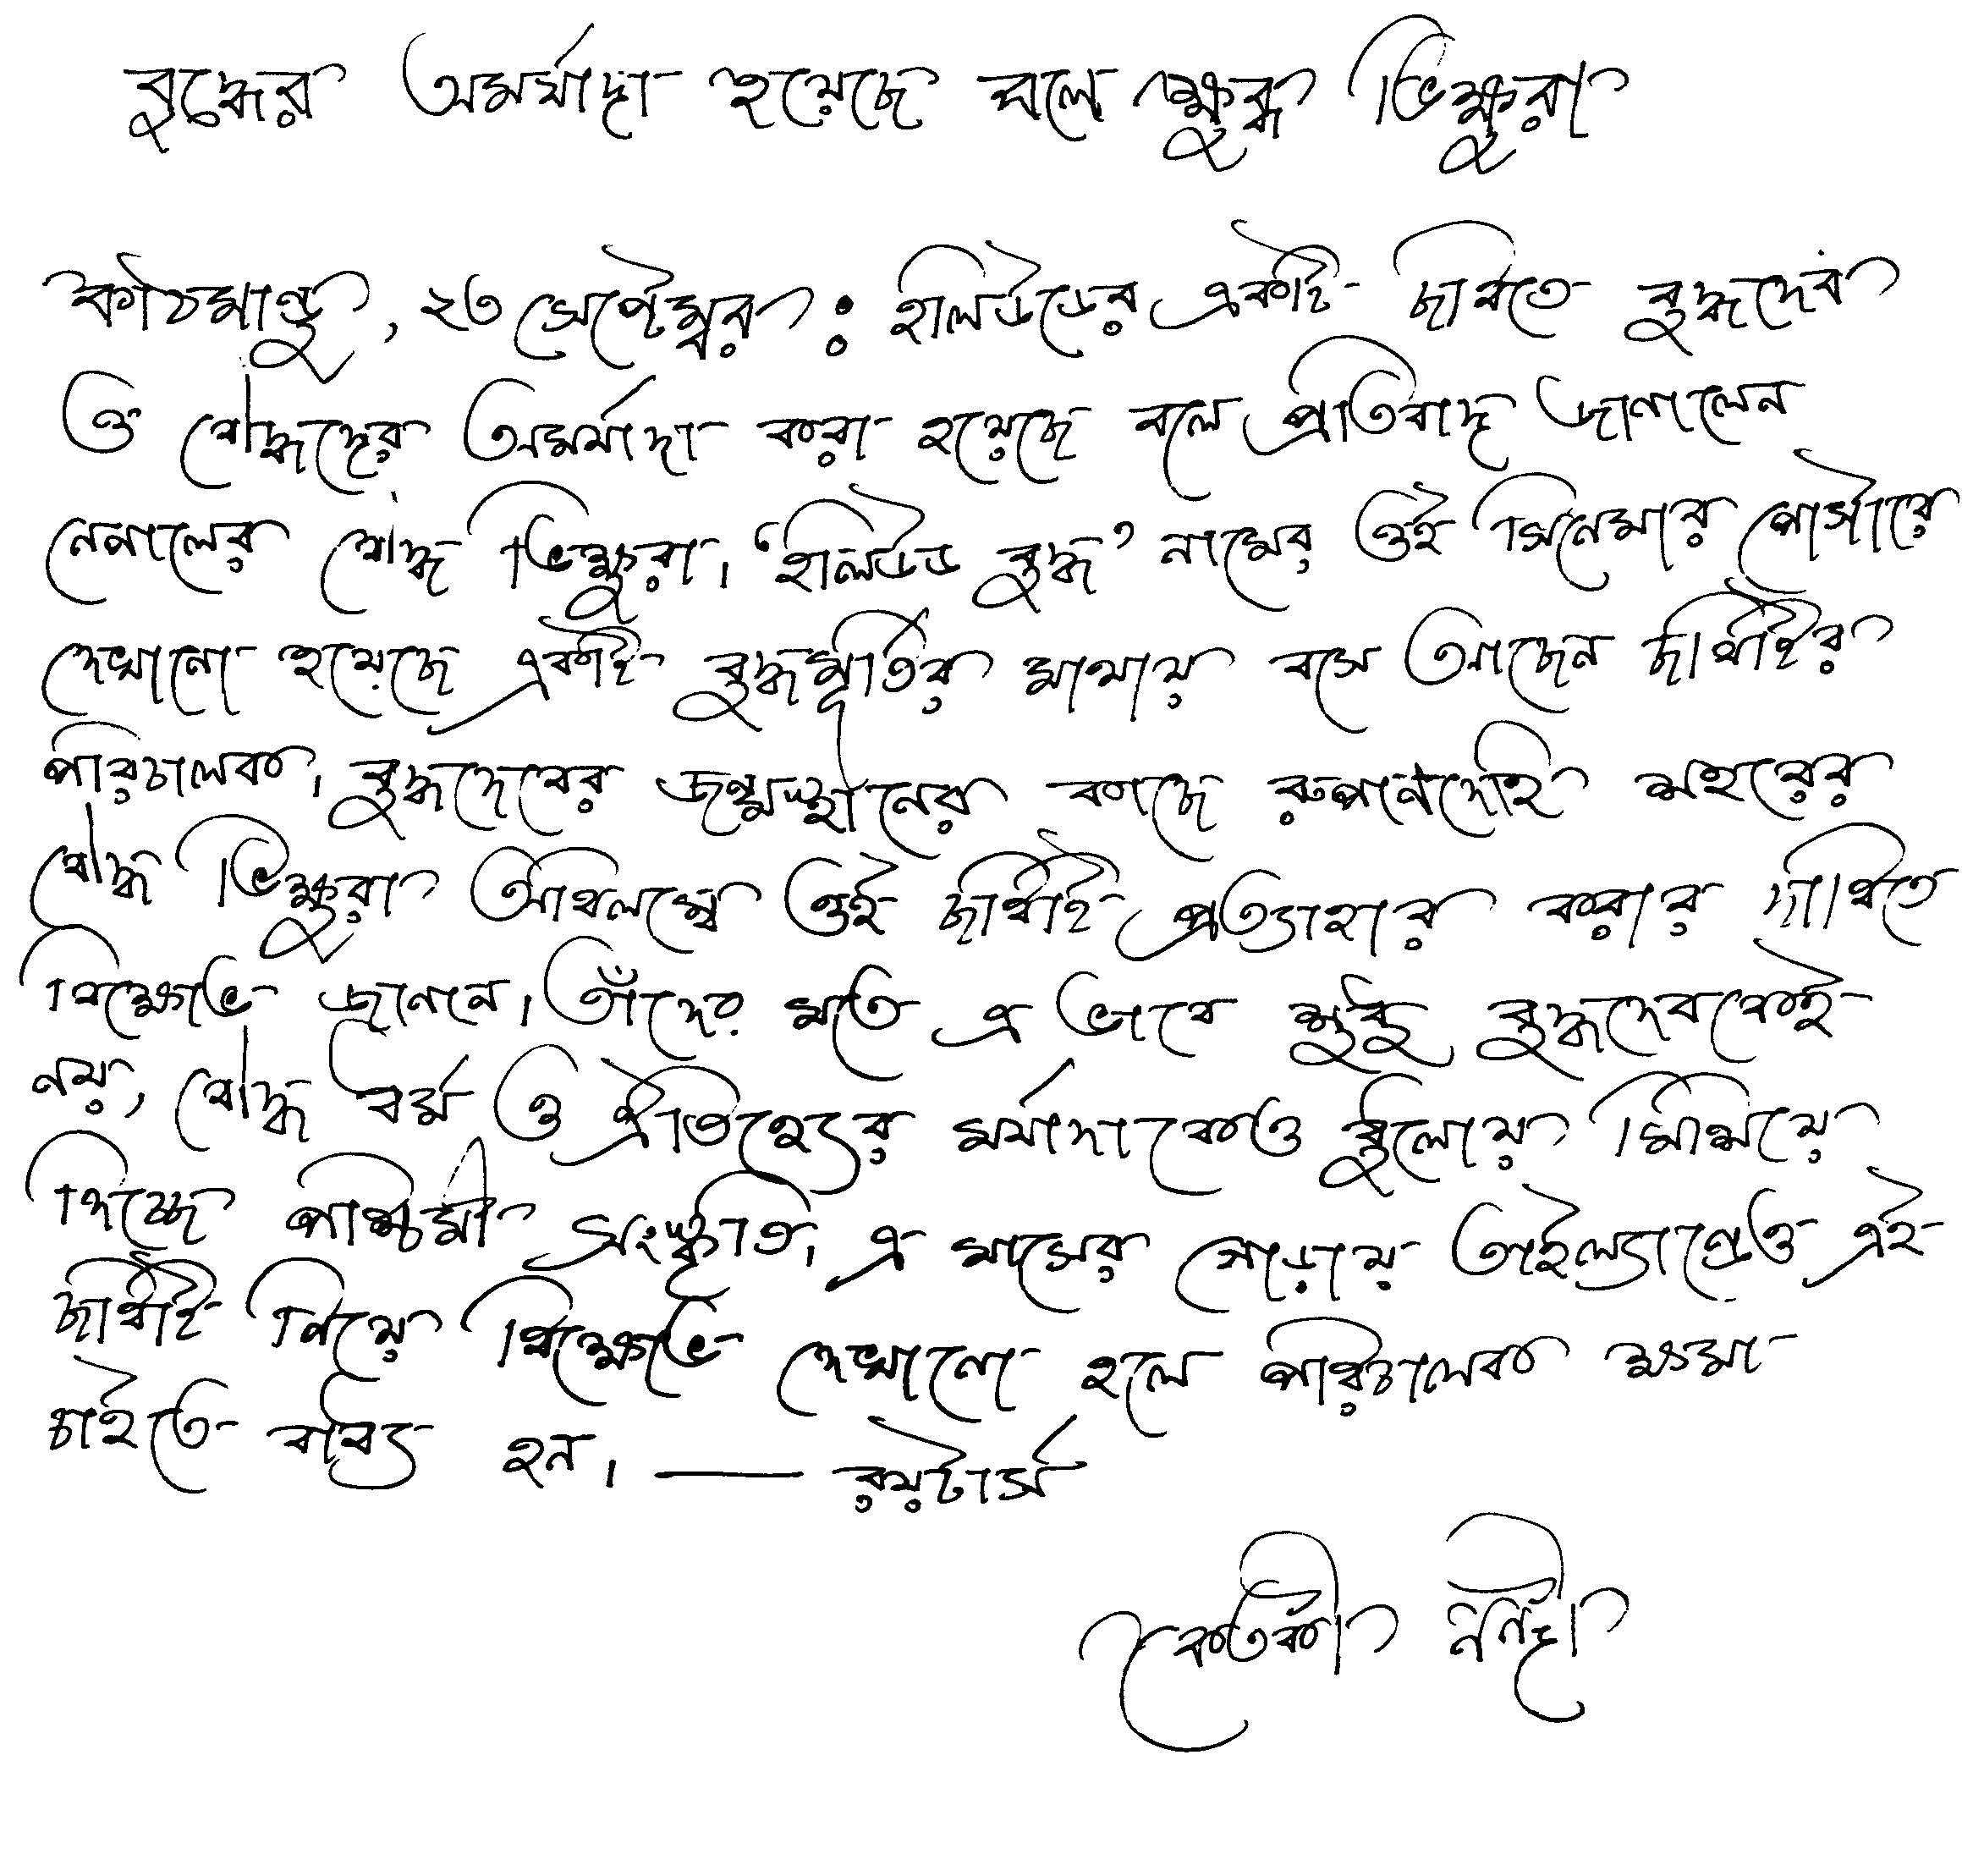 বুদ্ধের অমর্যাদা হয়েছে বলে ক্ষুব্ধ ভিক্ষুরা
কাঠমান্ডু, ২৩ সেপ্টেম্বর : হলিউডের একটি ছবিতে বুদ্ধদেব
ও বৌদ্ধদের অমর্যাদা করা হয়েছে বলে প্রতিবাদ জানালেন
নেপালের বৌদ্ধ ভিক্ষুরা। 'হলিউড বুদ্ধ' নামের ওই সিনেমার পোস্টারে
দেখানো হয়েছে একটি বুদ্ধমূর্তির মাথায় বসে আছেন ছবিটির
পরিচালক। বুদ্ধদেবের জন্মস্থানের কাছে রুপানদেহি শহরের
বৌদ্ধ ভিক্ষুরা অবিলম্বে ওই ছবিটি প্রত্যাহার করার দাবিতে
বিক্ষোভ জানান। তাঁদের মতে এ ভাবে শুধু বুদ্ধদেবকেই
নয়, বৌদ্ধ ধর্ম ও ঐতিহ্যের মর্যাদাকেও ধুলোয় মিশিয়ে
দিচ্ছে পাশ্চিমী সংস্কৃতি। এ মাসের গোড়ায় তাইল্যান্ডেও এই
ছবিটি নিয়ে বিক্ষোভ দেখানো হলে পরিচালক ক্ষমা
চাইতে বাধ্য হন। — রয়টার্স
কেতকী নন্দী